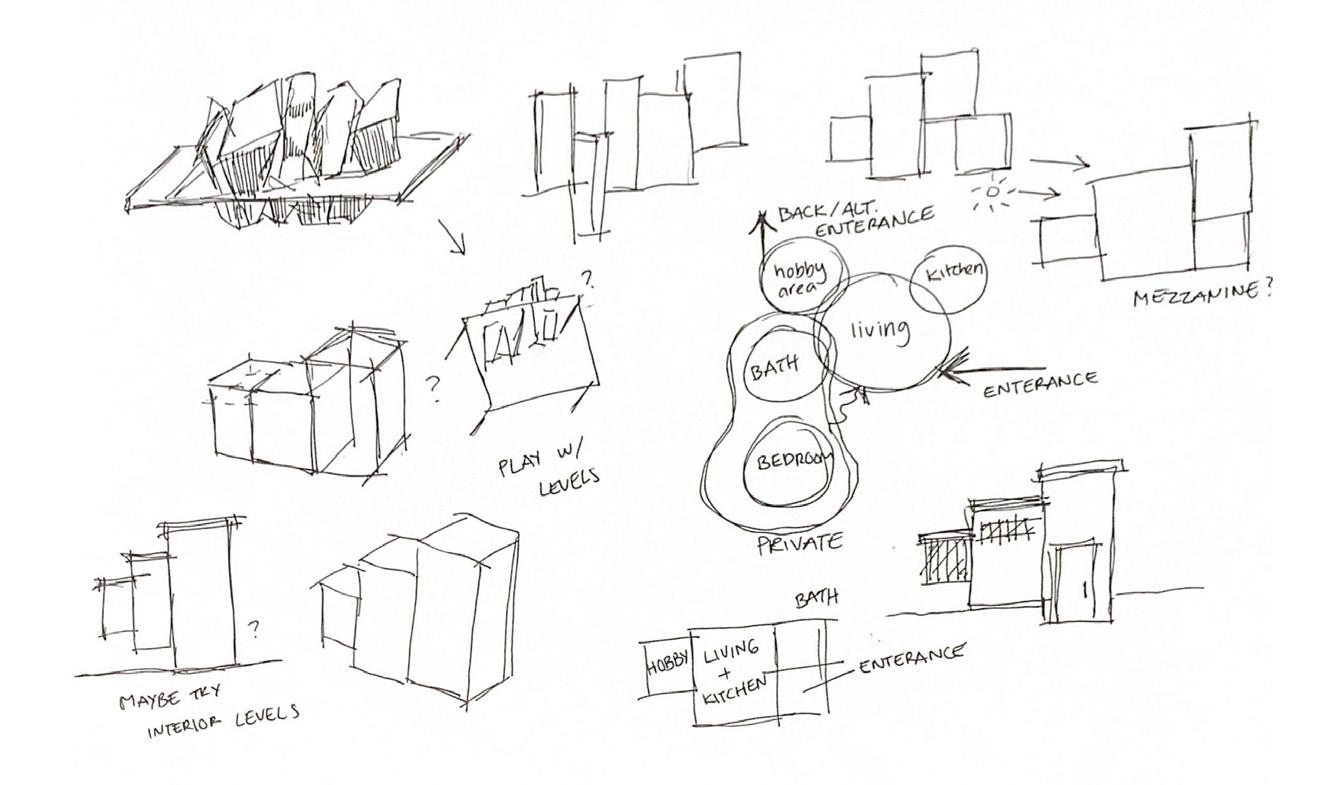 BACK/ALT.
ENTERANCE
hobby
area
Kitchen
living
MEZZANINE?
?
?
BATH
ENTERANCE
PLAY W/
LEVELS
BEDROOM
PRIVATE
?
MAYBE TRY
INTERIOR LEVELS
BATH
HOBBY
LIVING
+
KITCHEN
ENTERANCE